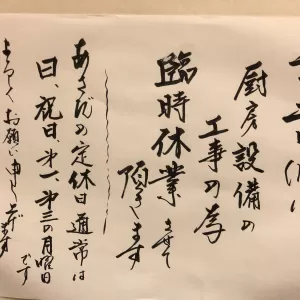 厨房設備の
工事の為
臨時休業させて
頂きます
あさぎの定休日通常は
日、祝日、第一、第三の月曜日
です
よろしくお願い申し上げます